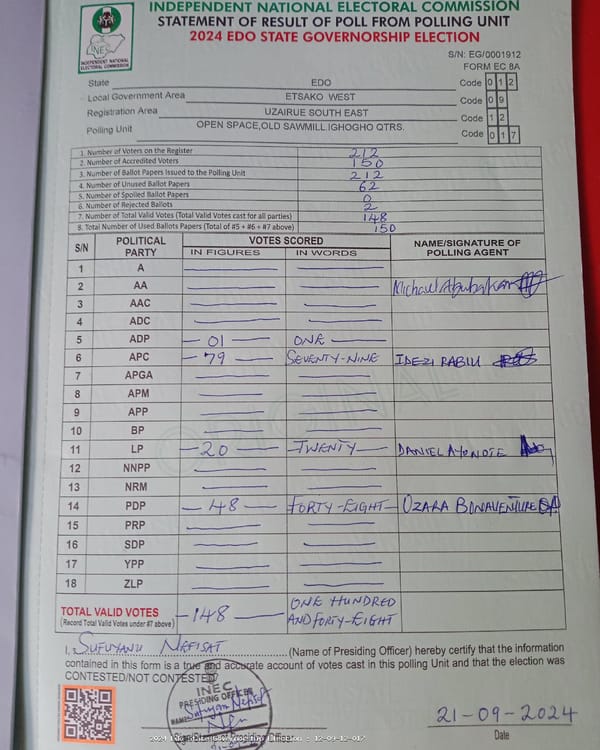 INDEPENDENT NATIONAL ELECTORAL COMMISSION
STATEMENT OF RESULT OF POLL FROM POLLING UNIT
2024 EDO STATE GOVERNORSHIP ELECTION
INEC
INDEPENDENT NATIONAL ELECTORAL COMMISSION
S/N: EG/0001912
FORM EC 8A
State EDO Code 0 1 2
Local Government Area ETSAKO WEST Code 0 9
Registration Area UZAIRUE SOUTH EAST Code 1 2
Polling Unit OPEN SPACE,OLD SAWMILL IGHOGHO QTRS. Code 0 1 7
1. Number of Voters on the Register 212
2. Number of Accredited Voters 150
3. Number of Ballot Papers Issued to the Polling Unit 212
4. Number of Unused Ballot Papers 62
5. Number of Spoiled Ballot Papers 0
6. Number of Rejected Ballots 2
7. Number of Total Valid Votes (Total Valid Votes cast for all parties) 148
8. Total Number of Used Ballots Papers (Total of #5 + #6 + #7 above) 150
S/N POLITICAL PARTY VOTES SCORED NAME/SIGNATURE OF POLLING AGENT
IN FIGURES IN WORDS
1 A
2 AA Michael
3 AAC
4 ADC
5 ADP 01 ONE
6 APC 79 SEVENTY-NINE IDEZI RABIU
7 APGA
8 APM
9 APP
10 BP
11 LP 20 TWENTY DANIEL
12 NNPP
13 NRM
14 PDP 48 FORTY-EIGHT OZARA BONAVENTURE
15 PRP
16 SDP
17 YPP
18 ZLP
TOTAL VALID VOTES 148 ONE HUNDRED AND FORTY-EIGHT
(Record Total Valid Votes under #7 above)
I, SUFUYANU NEFISAT (Name of Presiding Officer) hereby certify that the information
contained in this form is a true and accurate account of votes cast in this polling Unit and that the election was
CONTESTED/NOT CONTESTED
INEC
PRESIDING OFFICER
NAME
21-09-2024
Date